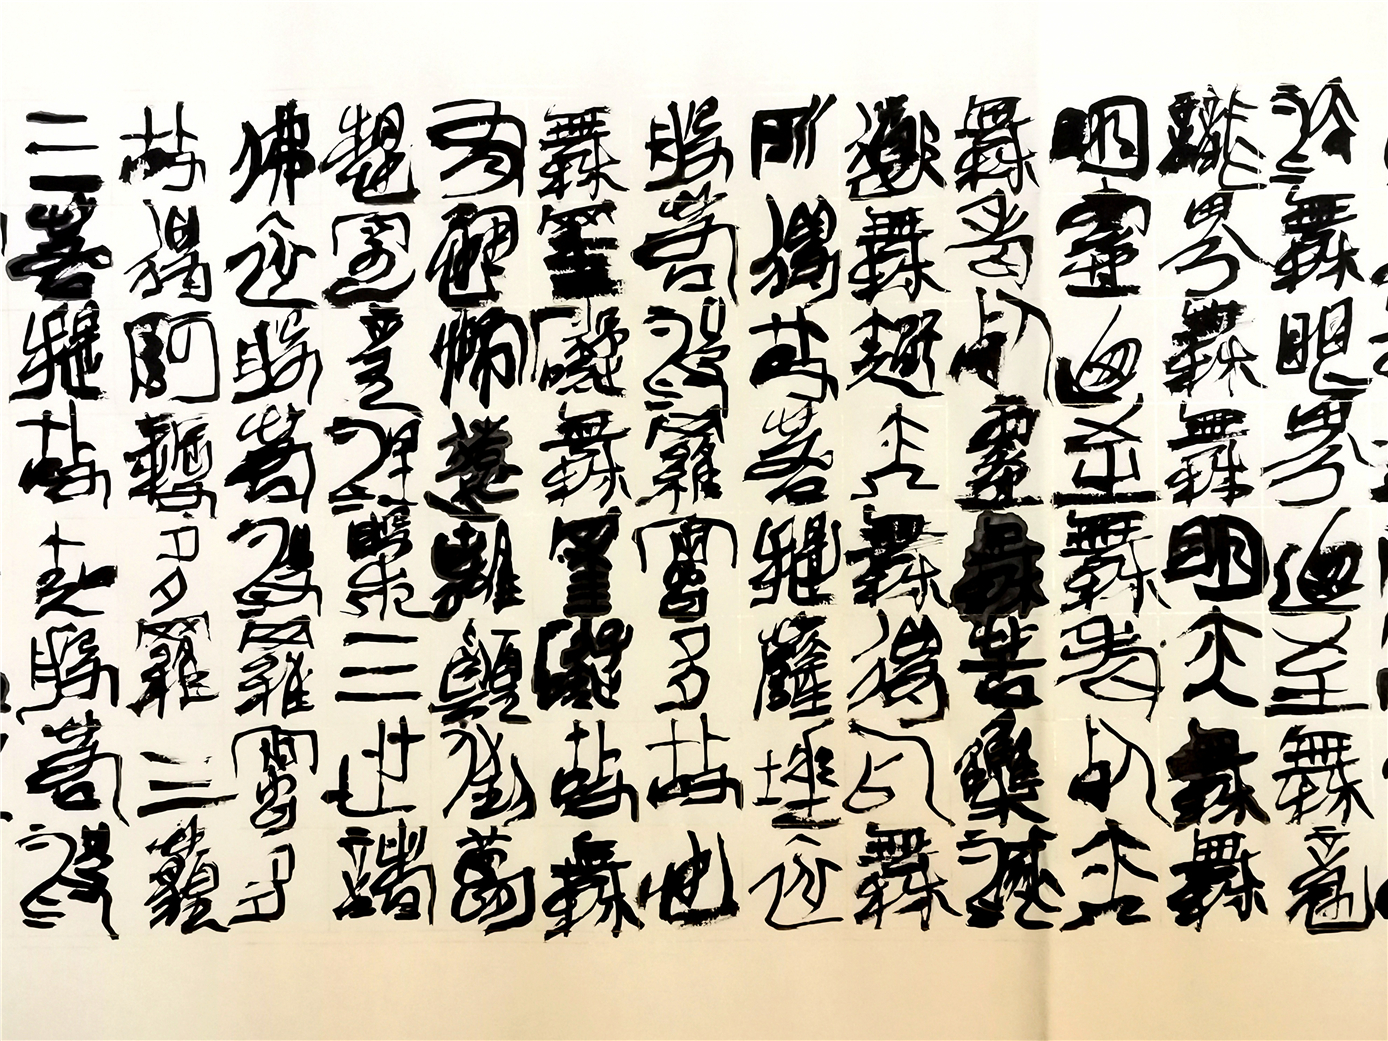 法無眼界乃至無意
識界無無明亦無無
明盡乃至無老死亦
無老死盡無苦集滅
道無智亦無得以無
所得故菩提薩埵依
般若波羅蜜多故心
無罣礙無罣礙故無
有恐怖遠離顛倒夢
想究竟涅槃三世諸
佛依般若波羅蜜多
故得阿耨多羅三藐
三菩提故知般若波